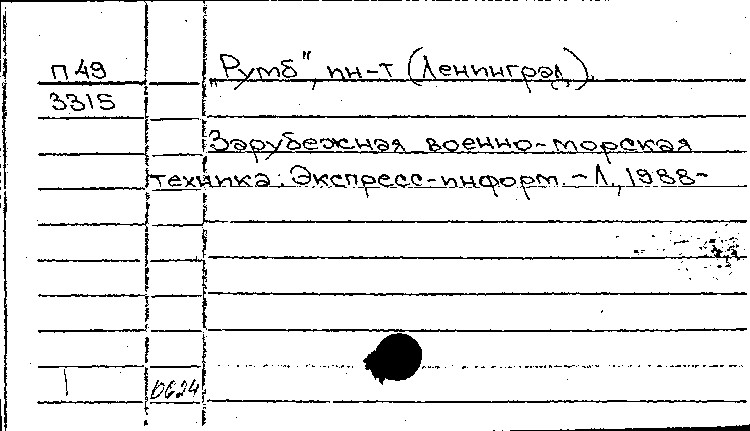 П49 „Румб", ин-т (Ленинград).
3315
Зарубежная военно-морская
техника: Экспресс-информ. - Л., 1988-
0624